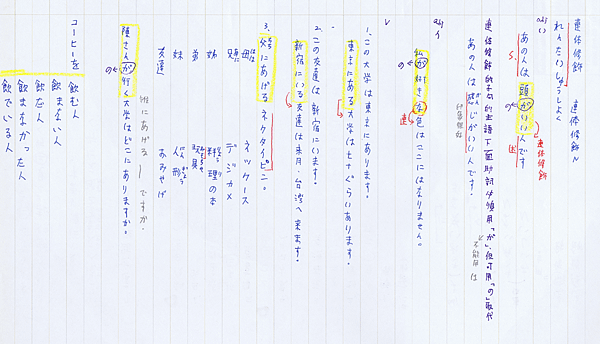 連体修飾 連体修飾N
れんたいしゅうしょく
adj
(い)
あの人は頭がいいんです
の
S.
述
連体修飾
連体修飾的子句的主語下面助詞慣用「が」但可用「の」取代
不能用は
あの人は感じがいいんです。
adj
ナ
私が好き色はここにはありません。
の
V
1. この大学は東京にあります。
東京にある大学は七十ぐらいあります。
2. この友達は新宿にいます。
新宿にいる友達は来月、台湾へ来ます。
3. 父にあげるネクタイピン。
母 ネックレース
兄 デジカメ
姉 料理の本
弟 玩具
妹 人形
友達 おみやげ
誰にあげる ですか。
陳さんが行く大学はどこにありますか。
の
コーヒーを 飲む人
飲まない人
飲んだ人
飲まなかった人
飲んでいる人